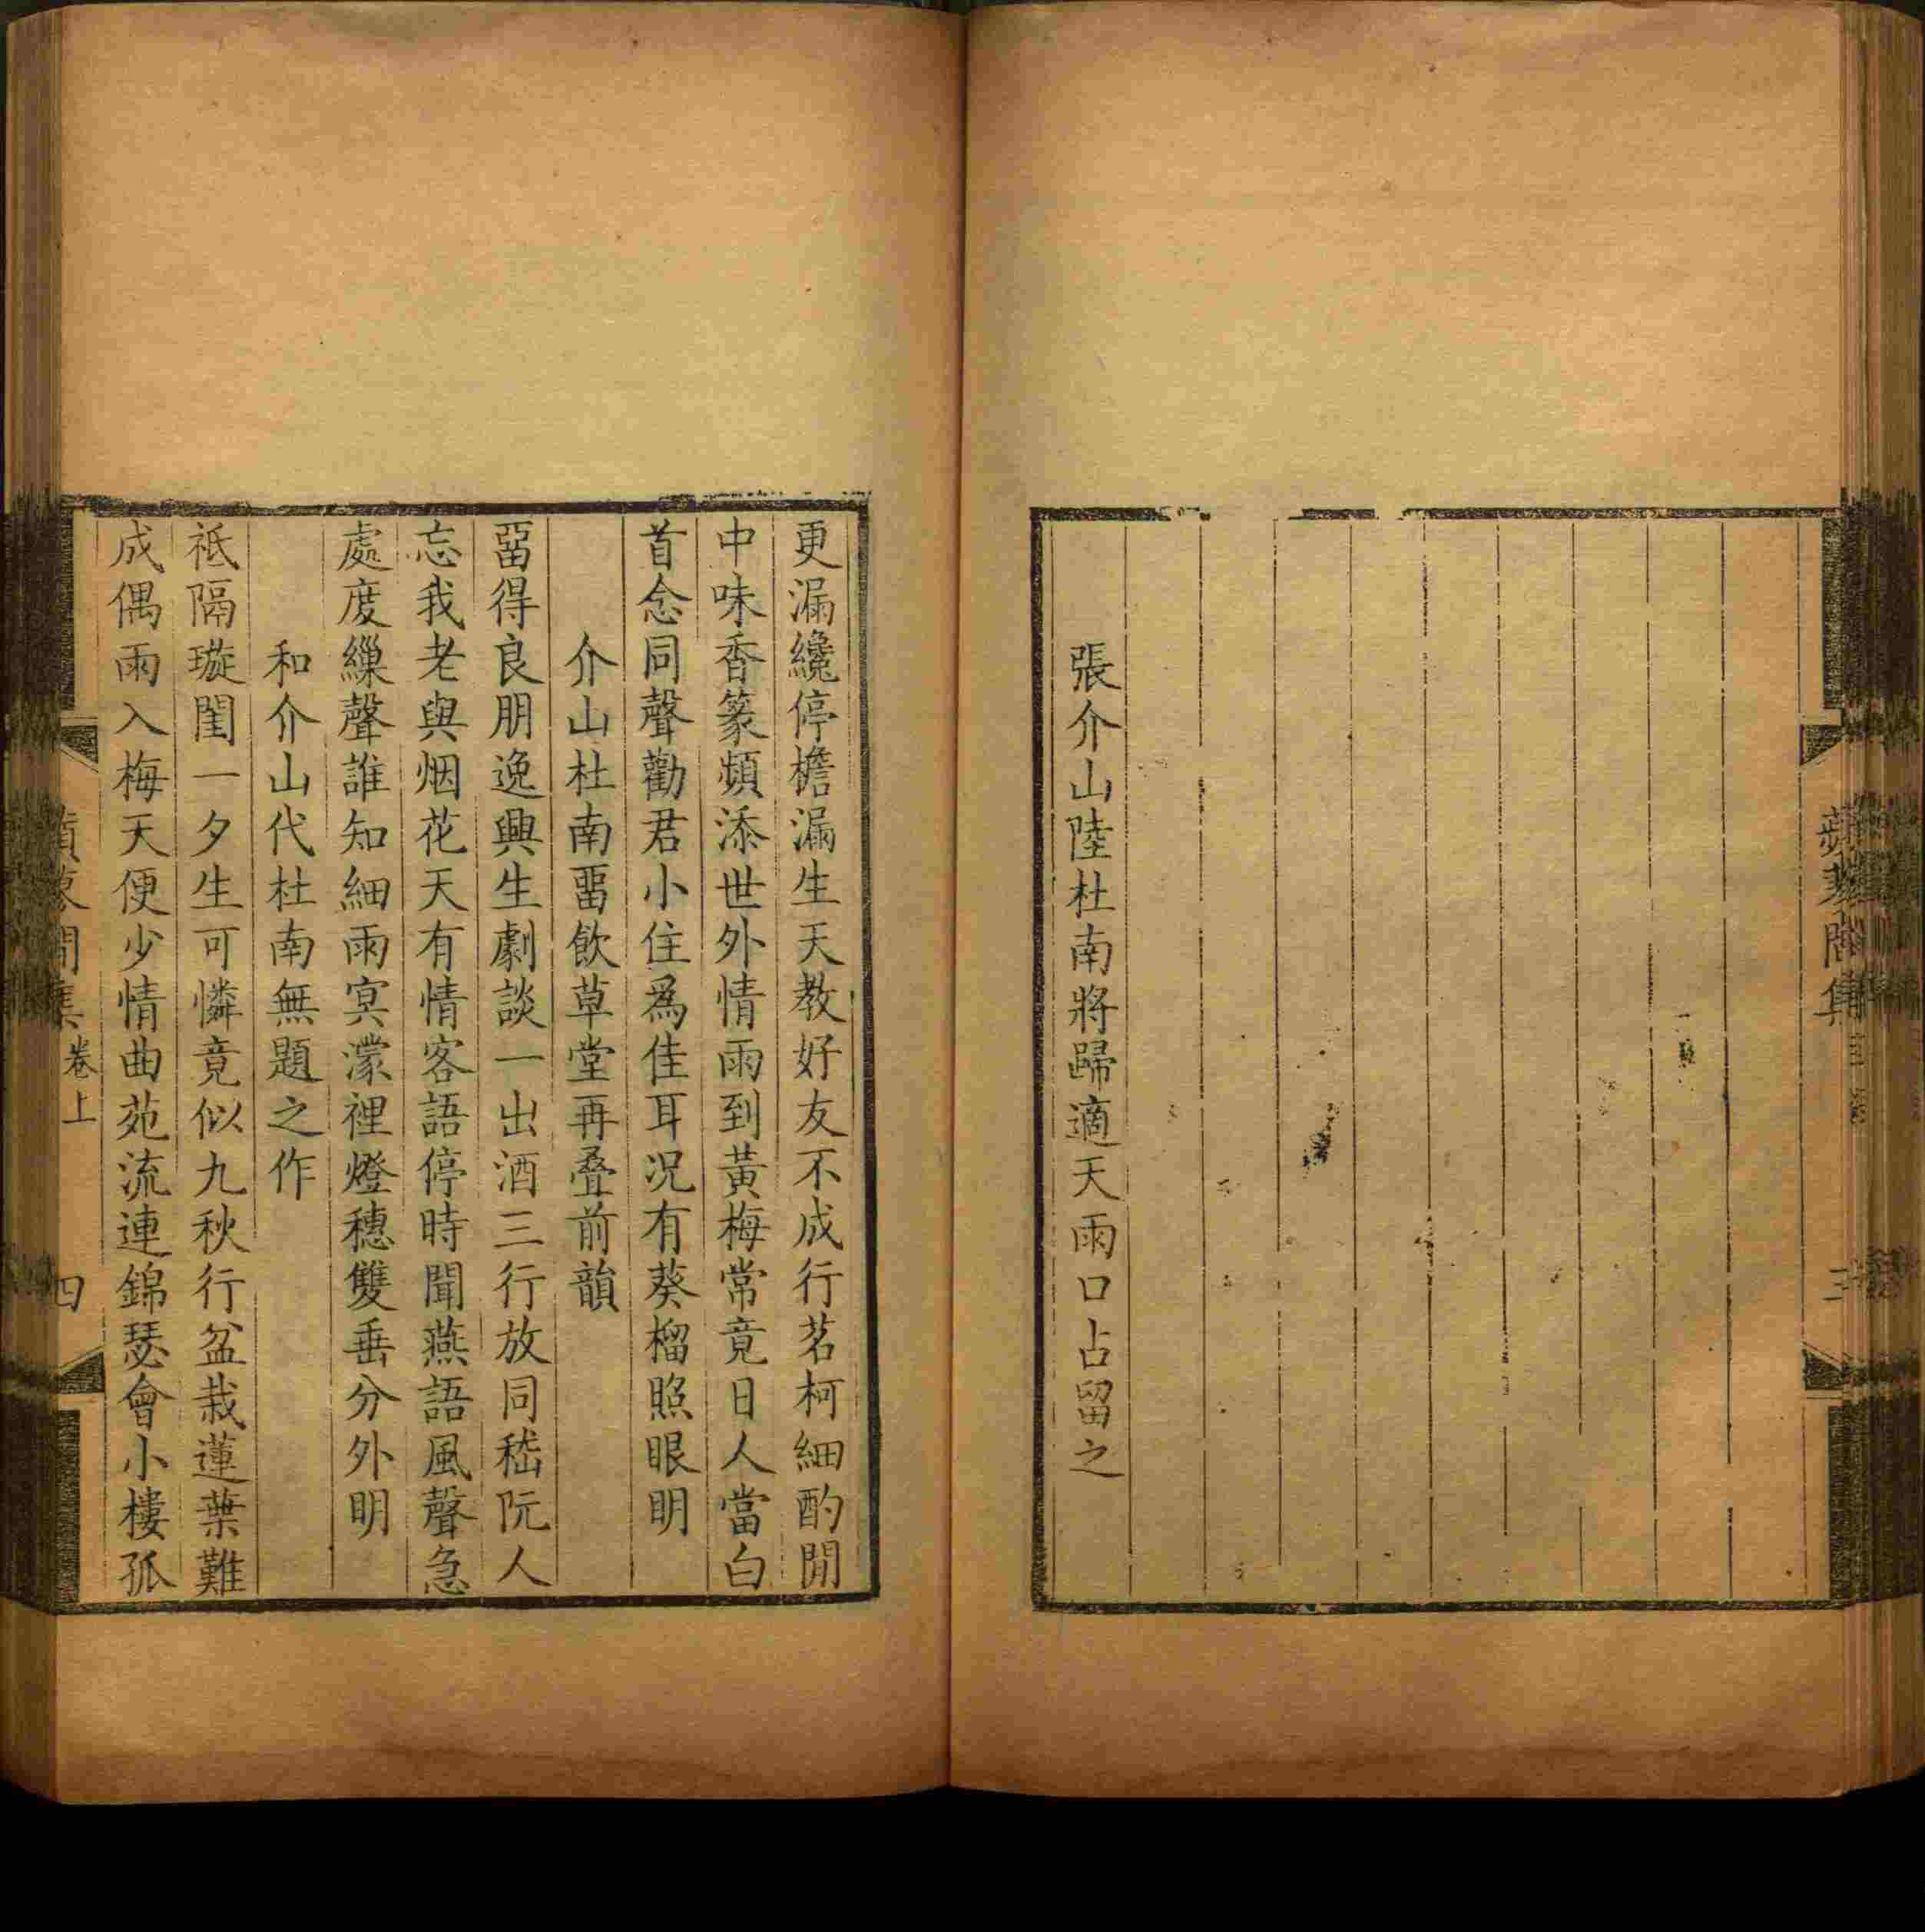 張介山陸杜南將歸適天雨口占留之
更漏纔停檐漏生天教好友不成行茗柯細酌閒
中味香篆頻添世外情雨到黃梅常竟日人當白
首念同聲勸君小住爲佳耳况有葵榴照眼明
介山杜南畱飲草堂再疊前韻
畱得良朋逸興生劇談一出酒三行放同嵇阮人
忘我老與烟花天有情客語停時聞燕語風聲急
處度繅聲誰知細雨冥濛裡燈穗雙垂分外明
和介山代杜南無題之作
祗隔璇閨一夕生可憐竟似九秋行盆栽蓮葉難
成偶雨入梅天便少情曲苑流連錦瑟會小樓孤
卷上
四